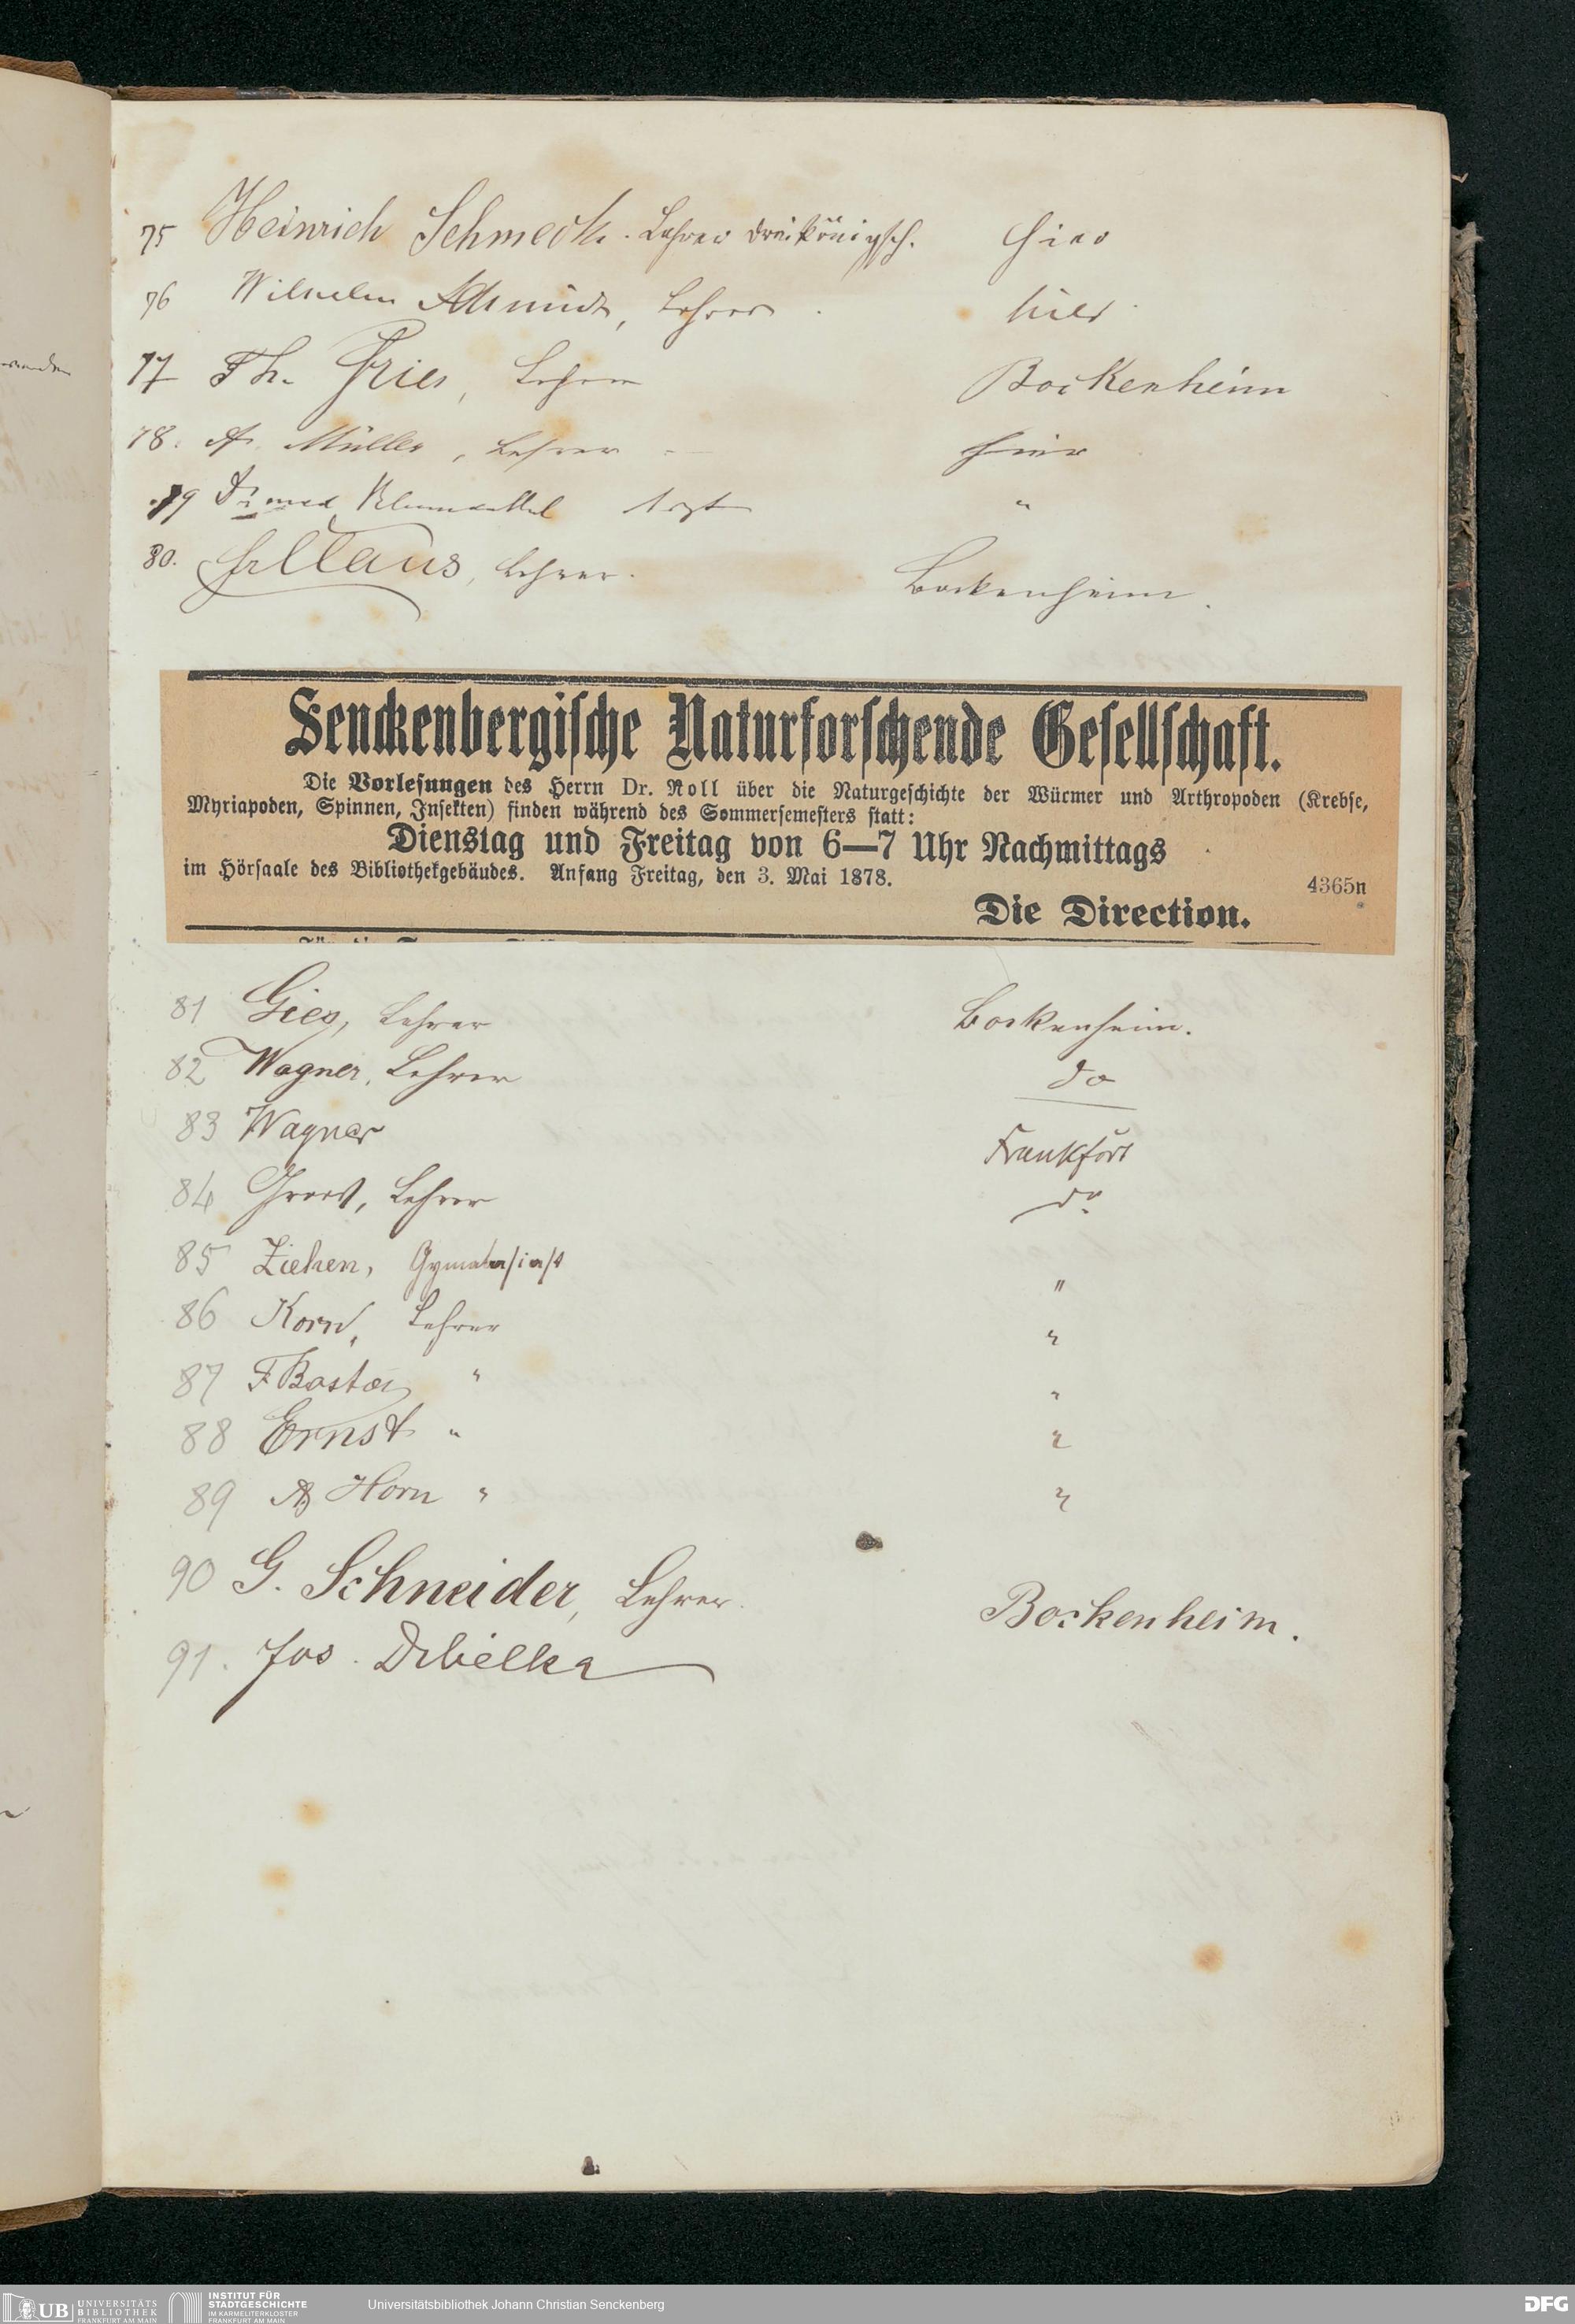 75 Heinrich Schmeck. Lehrer Dreikönigsch. hier
76 Wilhelm Schmidt, Lehrer hier
77 Th. Fries, Lehrer Bockenheim
78. A. Müller, Lehrer hier
79 Dr med Blumenthal Arzt "
80. Claus, Lehrer. Bockenheim.
Senckenbergische Naturforschende Gesellschaft.
Die Vorlesungen des Herrn Dr. Noll über die Naturgeschichte der Würmer und Arthropoden (Krebse,
Myriapoden, Spinnen, Insekten) finden während des Sommersemesters statt:
Dienstag und Freitag von 6—7 Uhr Nachmittags
im Hörsaale des Bibliothekgebäudes. Anfang Freitag, den 3. Mai 1878. 4365n
Die Direction.
81 Gies, Lehrer Bockenheim.
82 Wagner, Lehrer do
83 Wagner Frankfurt
84 Lehrer do
85 Ziehen, "
86 Korn, Lehrer "
87 F " "
88 Ernst " "
89 A Horn " "
90 G. Schneider, Lehrer. Bockenheim.
91. Jos.
UB UNIVERSITÄTS
BIBLIOTHEK
FRANKFURT AM MAIN
INSTITUT FÜR
STADTGESCHICHTE
IM KARMELITERKLOSTER
FRANKFURT AM MAIN
Universitätsbibliothek Johann Christian Senckenberg
DFG